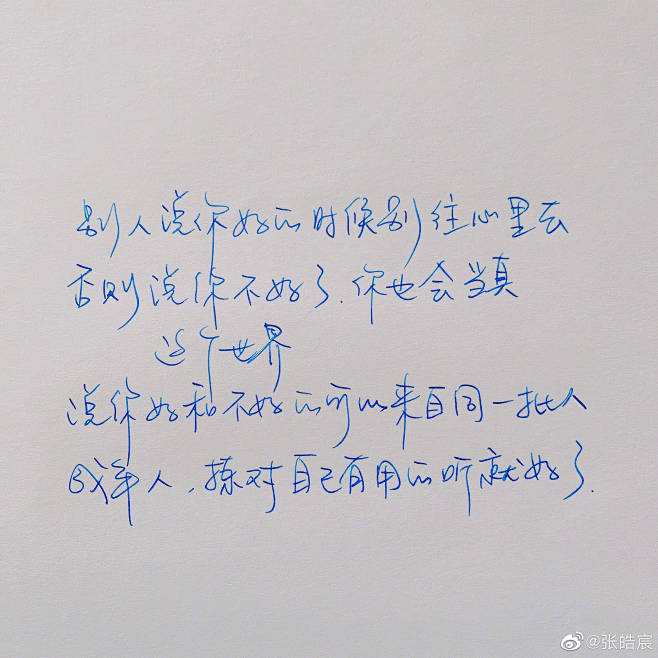 别人说你好的时候别往心里去
否则说你不好了.你也会当真
这个世界
说你好和不好的可以来自同一批人
成年人,拣对自己有用的听就好了.
@张皓宸